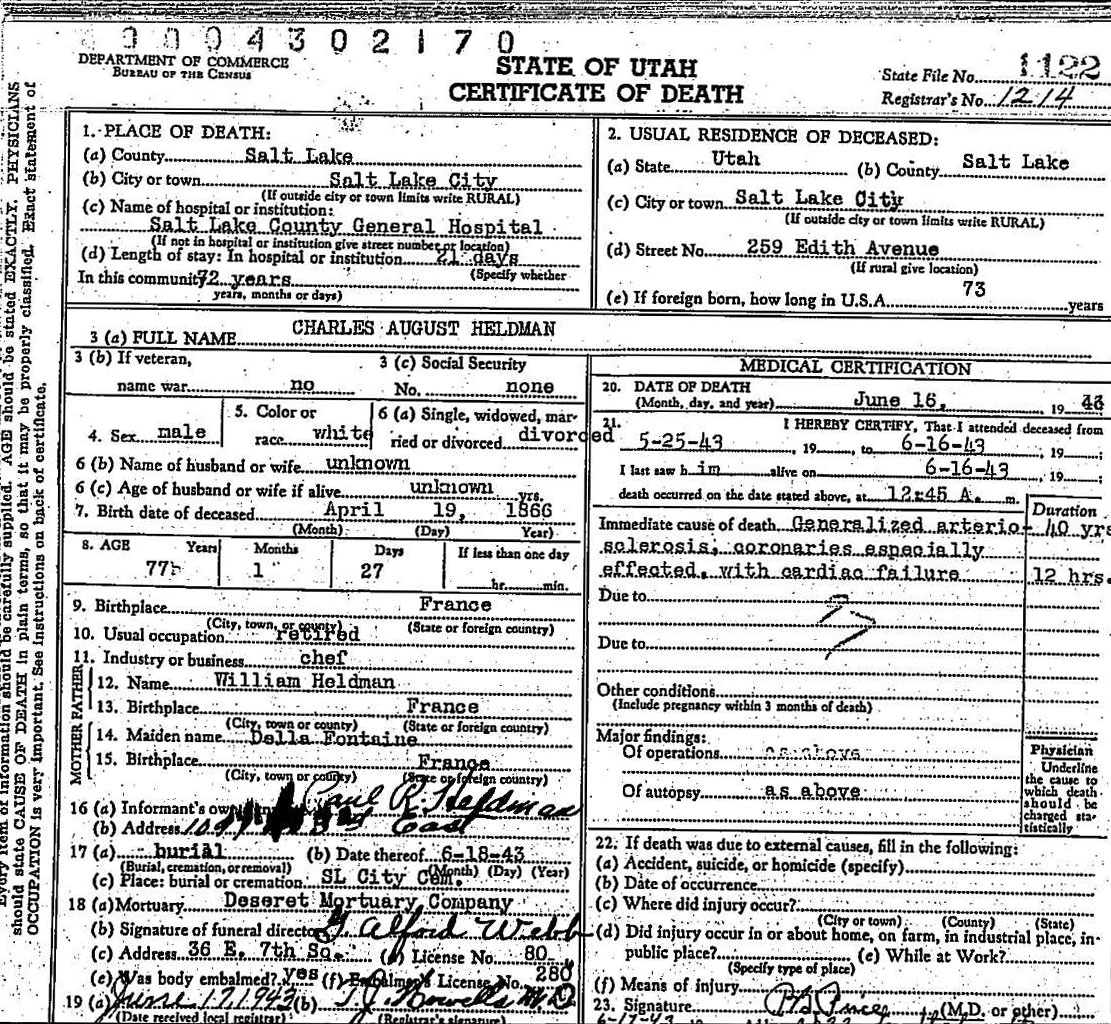 0004302170
DEPARTMENT OF COMMERCE
BUREAU OF THE CENSUS
STATE OF UTAH
CERTIFICATE OF DEATH
State File No. 1122
Registrar's No. 1214
1. PLACE OF DEATH:
(a) County Salt Lake
(b) City or town Salt Lake City
(If outside city or town limits write RURAL)
(c) Name of hospital or institution:
Salt Lake County General Hospital
(If not in hospital or institution give street number or location)
(d) Length of stay: In hospital or institution 21 days
(Specify whether
In this community 72 years
years, months or days)
2. USUAL RESIDENCE OF DECEASED:
(a) State Utah (b) County Salt Lake
(c) City or town Salt Lake City
(If outside city or town limits write RURAL)
(d) Street No. 259 Edith Avenue
(If rural give location)
(e) If foreign born, how long in U.S.A. 73 years
3 (a) FULL NAME CHARLES AUGUST HELDMAN
3 (b) If veteran, 3 (c) Social Security
name war no No. none
4. Sex male 5. Color or race white 6 (a) Single, widowed, married or divorced divorced
6 (b) Name of husband or wife unknown
6 (c) Age of husband or wife if alive unknown yrs.
7. Birth date of deceased April 19, 1866
(Month) (Day) Year)
8. AGE Years Months Days If less than one day
77 1 27 hr. min.
9. Birthplace France
(City, town, or county) (State or foreign country)
10. Usual occupation retired
11. Industry or business chef
FATHER
12. Name William Heldman
13. Birthplace France
(City, town or county) (State or foreign country)
MOTHER
14. Maiden name Della Fontaine
15. Birthplace France
(City, town or county) (State or foreign country)
16 (a) Informant's own Paul R. Heldman
(b) Address East
17 (a) burial (b) Date thereof 6-18-43
(Burial, cremation, or removal) (Month) (Day) (Year)
(c) Place: burial or cremation SL City Cem.
18 (a) Mortuary Deseret Mortuary Company
(b) Signature of funeral director Alford Webb
(c) Address 36 E. 7th So. License No. 80
(e) Was body embalmed? yes (f) Embalmer's License No. 280
19 (a) June 17 1943 (b) M D
(Date received local registrar) (Registrar's signature)
MEDICAL CERTIFICATION
20. DATE OF DEATH
(Month, day, and year) June 16, 19 43
21. I HEREBY CERTIFY, That I attended deceased from
5-25-43, 19 , to 6-16-43, 19 ;
I last saw h im alive on 6-16-43, 19 ;
death occurred on the date stated above, at 12:45 A. m.
Duration
Immediate cause of death Generalized arterio- 40 yrs
sclerosis, coronaries especially
effected, with cardiac failure 12 hrs.
Due to
Due to
Other conditions
(Include pregnancy within 3 months of death)
Major findings:
Of operations as above
Of autopsy as above
Physician
Underline
the cause to
which death
should be
charged sta-
tistically
22. If death was due to external causes, fill in the following:
(a) Accident, suicide, or homicide (specify)
(b) Date of occurrence
(c) Where did injury occur?
(City or town) (County) (State)
(d) Did injury occur in or about home, on farm, in industrial place, in
public place? (e) While at Work?
(Specify type of place)
(f) Means of injury
23. Signature (M.D. or other)
6-17-43
Every item of information should be carefully supplied. AGE should be stated EXACTLY. PHYSICIANS
should state CAUSE OF DEATH in plain terms, so that it may be properly classified. Exact statement of
OCCUPATION is very important. See instructions on back of certificate.